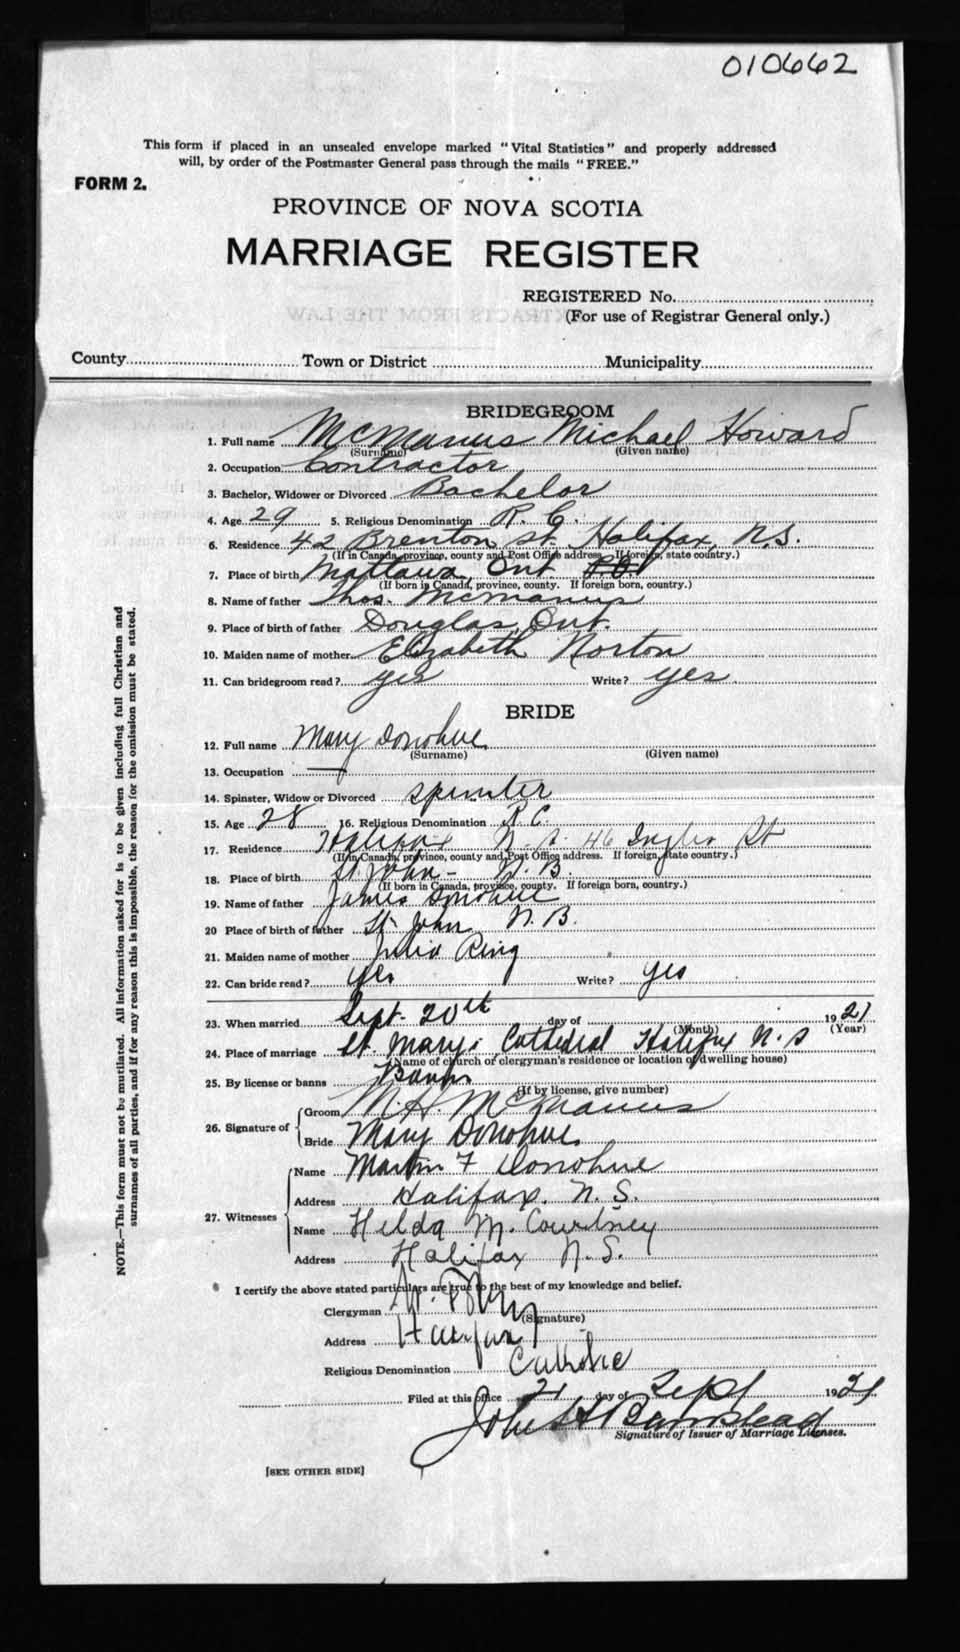 010662
This form if placed in an unsealed envelope marked "Vital Statistics" and properly addressed
will, by order of the Postmaster General pass through the mails "FREE."
FORM 2.
PROVINCE OF NOVA SCOTIA
MARRIAGE REGISTER
REGISTERED No.
(For use of Registrar General only.)
County Town or District Municipality
BRIDEGROOM
1. Full name McManus Michael Howard
(Surname) (Given name)
2. Occupation Contractor
3. Bachelor, Widower or Divorced Bachelor
4. Age 29 5. Religious Denomination R. C.
6. Residence 42 Brenton St. Halifax, N.S.
(If in Canada, province, county and Post Office address. If foreign, state country.)
7. Place of birth Mattawa, Ont.
(If born in Canada, province, county. If foreign born, country.)
8. Name of father Thos. McManus
9. Place of birth of father Douglas, Ont.
10. Maiden name of mother Elizabeth Norton
11. Can bridegroom read? yes Write? yes
BRIDE
12. Full name Mary Donohue
(Surname) (Given name)
13. Occupation —
14. Spinster, Widow or Divorced Spinster
15. Age 28 16. Religious Denomination R C.
17. Residence Halifax N. S. 46 Inglis St
(If in Canada, province, county and Post Office address. If foreign, state country.)
18. Place of birth St. John - N. B.
(If born in Canada, province, county. If foreign born, country.)
19. Name of father James Donohue
20 Place of birth of father St. John N. B.
21. Maiden name of mother Julia Ring
22. Can bride read? yes Write? yes
23. When married Sept. 20th day of 1921
(Month) (Year)
24. Place of marriage St. Mary's Cathedral Halifax N. S
(Name of church or clergyman's residence or location of dwelling house)
25. By license or banns Banns
(If by license, give number)
26. Signature of Groom M. H. McManus
Bride Mary Donohue
27. Witnesses Name Martin F Donohue
Address Halifax. N. S.
Name Helda M. Courtney
Address Halifax N. S.
I certify the above stated particulars are true to the best of my knowledge and belief.
Clergyman
(Signature)
Address Halifax
Religious Denomination Catholic
Filed at this office 21 day of Sept 1921
John H Barnstead
Signature of Issuer of Marriage Licenses.
[SEE OTHER SIDE]
NOTE.—This form must not be mutilated. All information asked for is to be given including full Christian and
surnames of all parties, and if for any reason this is impossible, the reason for the omission must be stated.